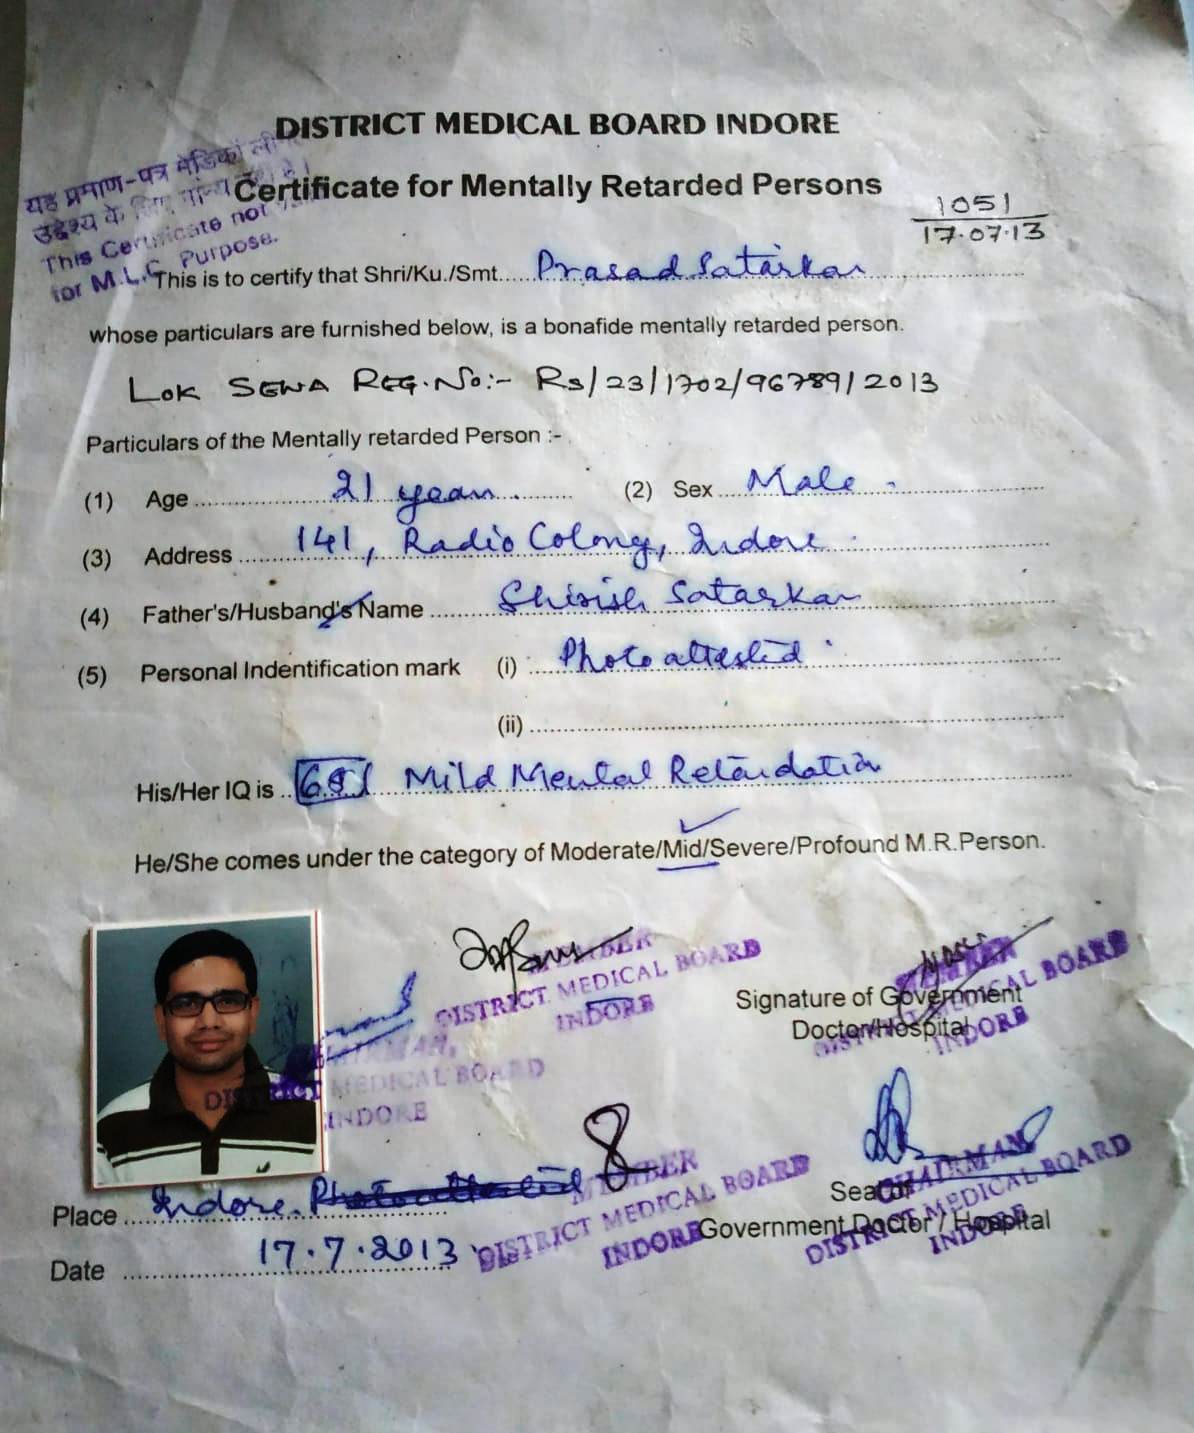 DISTRICT MEDICAL BOARD INDORE
यह प्रमाण-पत्र मेडिको ली
Certificate for Mentally Retarded Persons
उद्देश्य के लिए मान्य नहीं है।
This Certificate not
for M.L.C. Purpose.
1051
17.07.13
This is to certify that Shri/Ku./Smt. Prasad Satarkar
whose particulars are furnished below, is a bonafide mentally retarded person.
LOK SEWA REG.No:- RS/23/1702/96789/2013
Particulars of the Mentally retarded Person :-
(1) Age 21 years (2) Sex Male
(3) Address 141, Radio Colony, Indore
(4) Father's/Husband's Name Shirish Satarkar
(5) Personal Indentification mark (i) Photo attested
(ii)
His/Her IQ is Mild Mental Retardation
He/She comes under the category of Moderate/Mid/Severe/Profound M.R.Person.
MEMBER
DISTRICT MEDICAL BOARD
INDORE
MEMBER
DISTRICT MEDICAL BOARD
INDORE
Signature of Government
Doctor/Hospital
CHAIRMAN,
DISTRICT MEDICAL BOARD
INDORE
MEMBER
DISTRICT MEDICAL BOARD
INDORE
CHAIRMAN
DISTRICT MEDICAL BOARD
INDORE
Seal of
Government Doctor / Hospital
Place Indore.
Date 17.7.2013